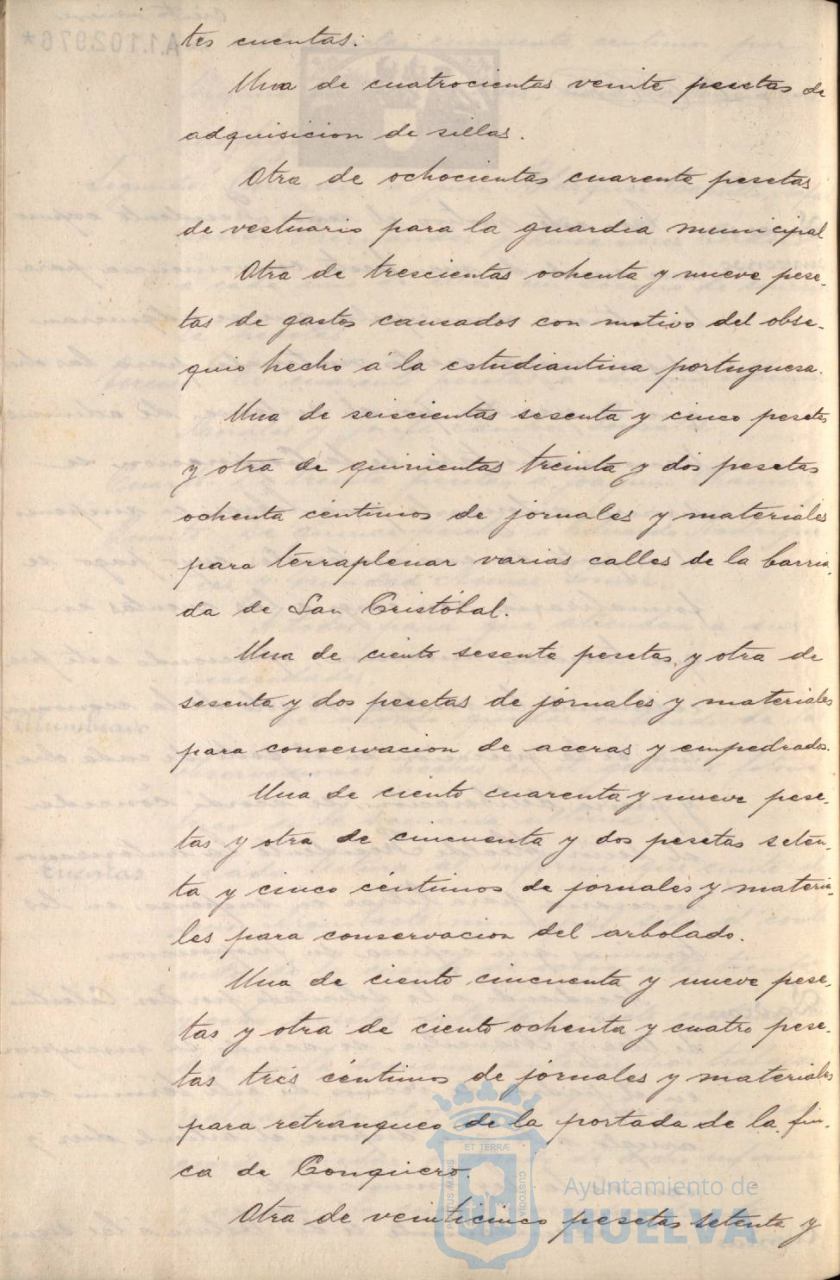 tes cuentas:
Una de cuatrocientas veinte pesetas de
adquisicion de sillas.
Otra de ochocientas cuarenta pesetas
de vestuario para la guardia municipal
Otra de trescientas ochenta y nueve pese-
tas de gastos causados con motivo del obse-
quio hecho á la estudiantina portuguesa.
Una de seiscientas sesenta y cinco pesetas
y otra de quinientas treinta y dos pesetas
ochenta céntimos de jornales y materiales
para terraplenar varias calles de la barria-
da de San Cristóbal.
Una de ciento sesenta pesetas y otra de
sesenta y dos pesetas de jornales y materiales
para conservacion de aceras y empedrados.
Una de ciento cuarenta y nueve pese-
tas y otra de cincuenta y dos pesetas seten-
ta y cinco céntimos de jornales y materia-
les para conservacion del arbolado.
Una de ciento cincuenta y nueve pese-
tas y otra de ciento ochenta y cuatro pese-
tas tres céntimos de jornales y materiales
para retranqueo de la portada de la fin-
ca de Conquero.
Otra de veinticinco pesetas setenta y
ET TERRÆ
CUSTODIA
Ayuntamiento de
HUELVA
A.1.102.976*